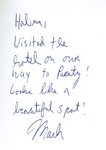 Halina,
Visited the
hotel on our
way to Presty!
Looks like a
beautiful spot!
Mark